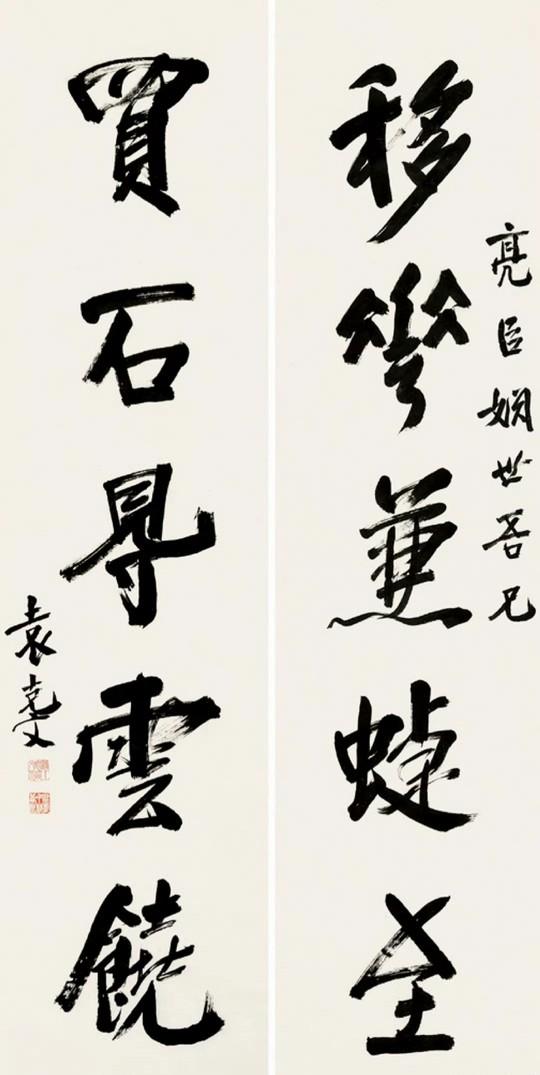 亮臣姻世吾兄
移華兼蜨至
買石㝵雲饒
袁克文